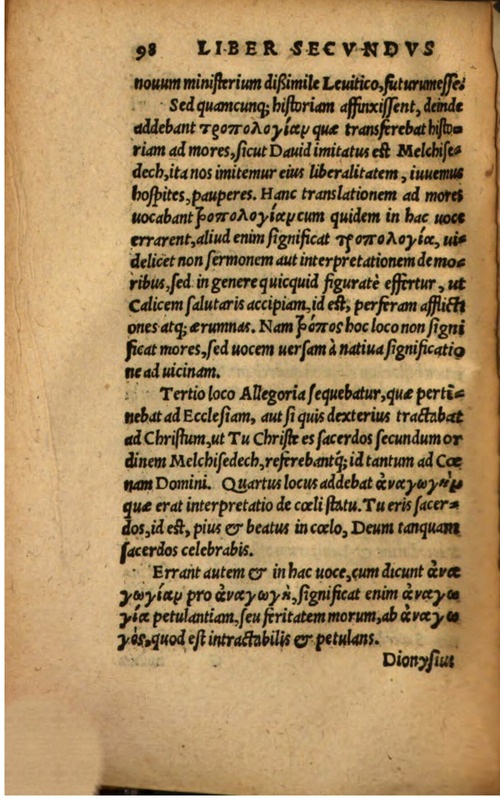 98 LIBER SECVNDVS
nouum ministerium dißimile Leuitico, futurum esse.
Sed quamcunq; historiam affinxissent, deinde
addebant τροπολογίαμ quæ transferebat histo-
riam ad mores, sicut Dauid imitatus est Melchise-
dech, ita nos imitemur eius liberalitatem, iuuemus
hospites, pauperes. Hanc translationem ad mores
uocabant τροπολογίαμ cum quidem in hac uoce
errarent, aliud enim significat τροπολογία, ui-
delicet non sermonem aut interpretationem de mo-
ribus, sed in genere quicquid figuratè effertur, ut
Calicem salutaris accipiam, id est, perferam afflicti
ones atq; ærumnas. Nam τρόπος hoc loco non signi
ficat mores, sed uocem uersam à natiua significatio
ne ad uicinam.
Tertio loco Allegoria sequebatur, quæ perti-
nebat ad Ecclesiam, aut si quis dexterius tractabat
ad Christum, ut Tu Christe es sacerdos secundum or
dinem Melchisedech, referebantq́; id tantum ad Cœ
nam Domini. Quartus locus addebat ἀναγωγὴμ
quæ erat interpretatio de cœli statu. Tu eris sacer-
dos, id est, pius & beatus in cœlo, Deum tanquam
sacerdos celebrabis.
Errant autem & in hac uoce, cum dicunt ἀνα
γωγίαμ pro ἀναγωγὴ, significat enim ἀναγω
γία petulantiam, seu feritatem morum, ab ἀναγω
γὸς, quod est intractabilis & petulans.
Dionysius